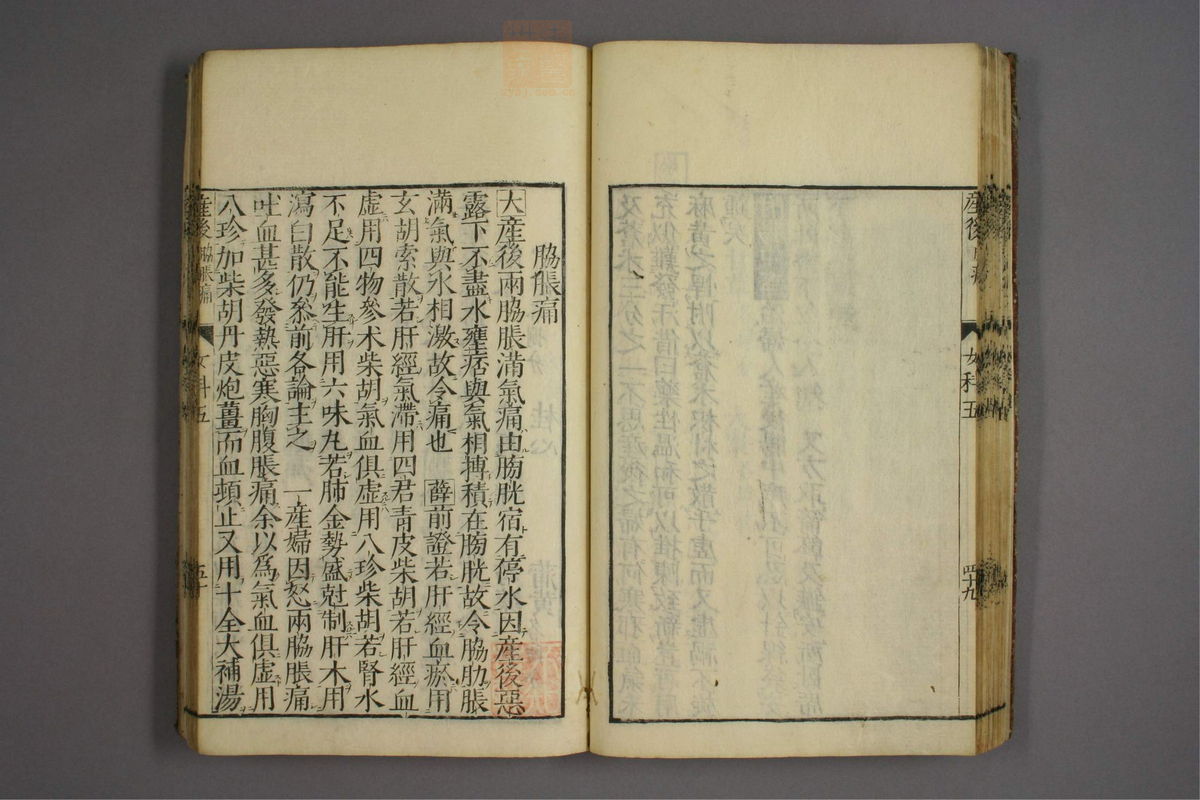 産後
女科五
四九
脇脹痛
大産後兩脇脹滿氣痛由膀胱宿有停水因産後惡
露下不盡水壅痞與氣相搏積在膀胱故令脇肋脹
滿氣與水相激故令痛也 薛前證若肝經血瘀用
玄胡索散若肝經氣滯用四君青皮柴胡若肝經血
虚用四物參术柴胡氣血俱虚用八珍柴胡若腎水
不足不能生肝用六味丸若肺金勢盛尅制肝木用
瀉白散仍參前各論主之 一産婦因怒兩脇脹痛
吐血甚多發熱惡寒胸腹脹痛余以爲氣血俱虚用
八珍加柴胡丹皮炮薑而血頓止又用十全大補湯
産後 脇脹痛
女科五
五十